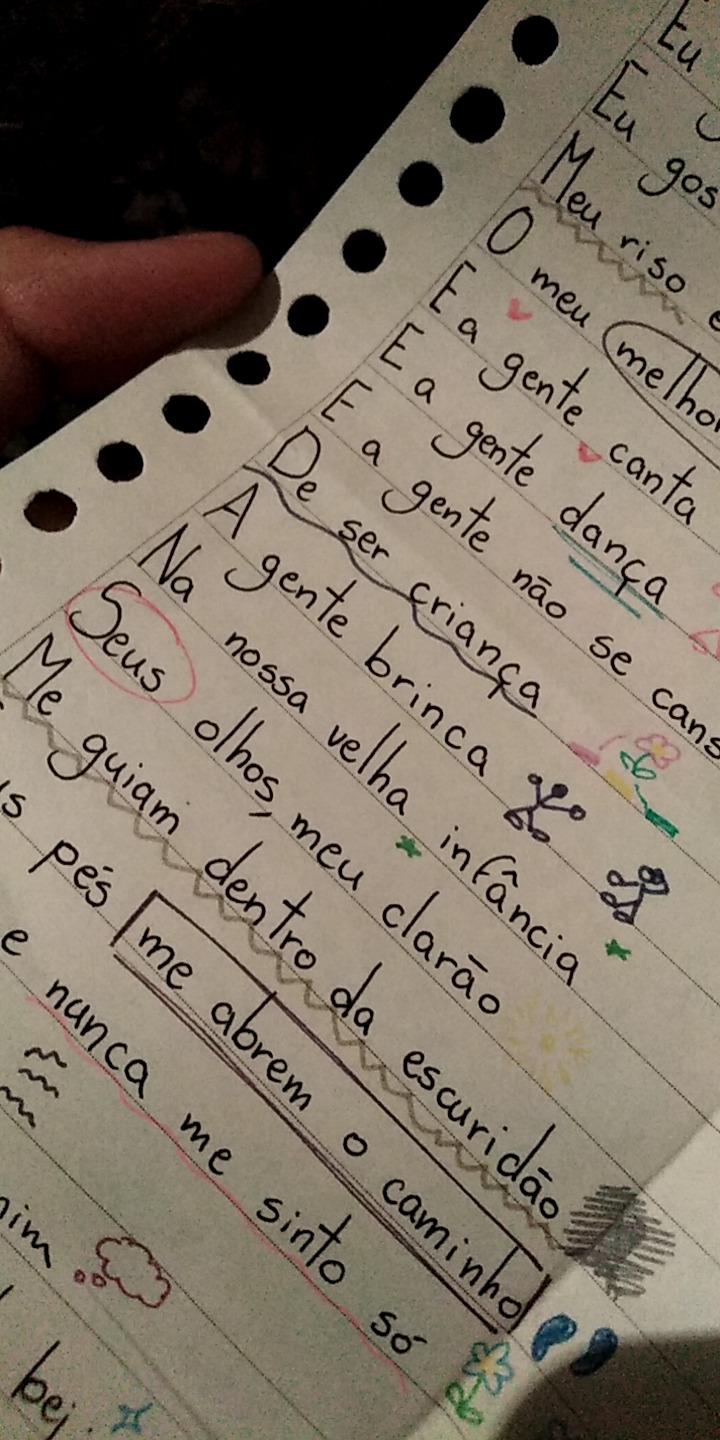 Eu
Eu gos
Meu riso é
O meu melhor
E a gente canta
E a gente dança
E a gente não se cans
De ser criança
A gente brinca
Na nossa velha infância
Seus olhos, meu clarão
Me guiam dentro da escuridão
s pés me abrem o caminho
e nunca me sinto só
mim
bej.